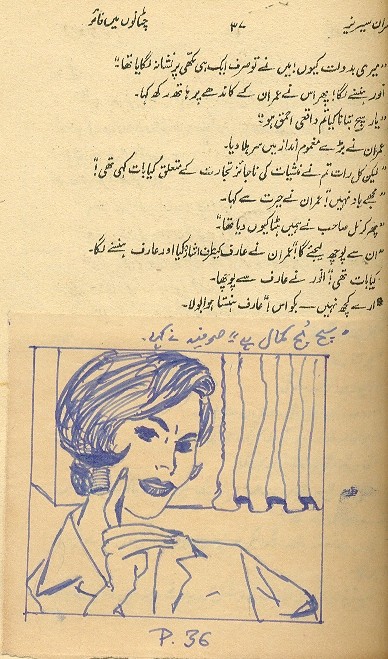 ران سیریز ۳۷ چٹانوں میں فائر
”میری بدولت کیوں! میں نے تو صرف ایک ہی مکھی پر نشانہ لگایا تھا“
انور ہنسنے لگا! پھر اس نے عمران کے کاندھے پر ہاتھ رکھ کہا۔
”یار سچ بتانا کیا تم واقعی احمق ہو“
عمران نے بڑے مغموم انداز میں سر ہلا دیا۔
”لیکن کل رات تم نے منشیات کی ناجائز تجارت کے متعلق کیا بات کہی تھی!“
”مجھے یاد نہیں“! عمران نے حیرت سے کہا۔
”پھر کرنل صاحب نے ہمیں ہٹا کیوں دیا تھا“
”ان سے پوچھ لیجئے گا“! عمران نے عارف کیطرف اشارہ کیا اور عارف ہنسنے لگا۔
”کیا بات تھی“! انور نے عارف سے پوچھا۔
”ارے کچھ نہیں — بکواس“! عارف ہنستا ہوا بولا۔
سچ مچ کمال ہے“! صوفیہ نے کہا۔
P. 36